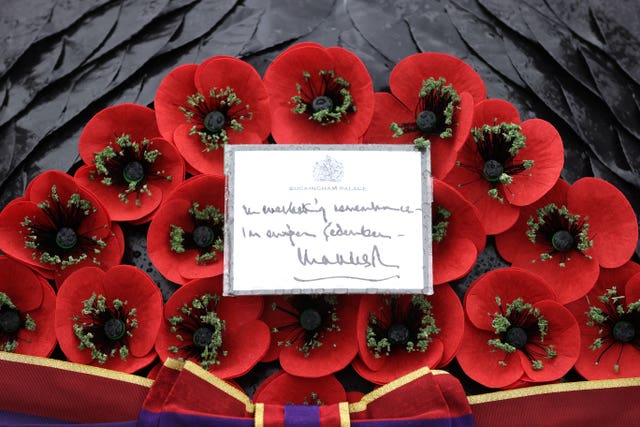 BUCKINGHAM PALACE
In everlasting remembrance -
Im ewigen Gedenken
Charles R